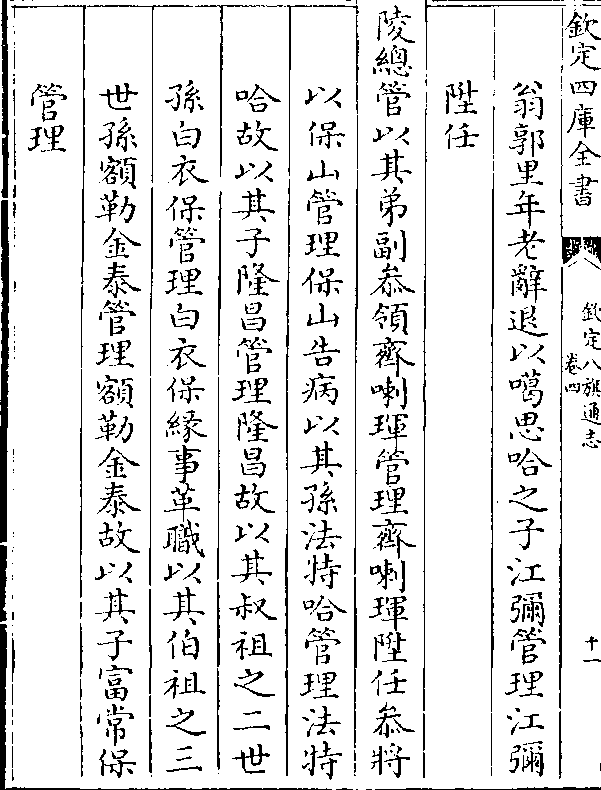 欽定四庫全書
欽定八旗通志
卷四
十一
翁郭里年老辭退以噶思哈之子江彌管理江彌
陞任
陵總管以其弟副叅領齊喇琿管理齊喇琿陞任叅將
以保山管理保山告病以其孫法特哈管理法特
哈故以其子隆昌管理隆昌故以其叔祖之二世
孫白衣保管理白衣保緣事革職以其伯祖之三
世孫額勒金泰管理額勒金泰故以其子富常保
管理